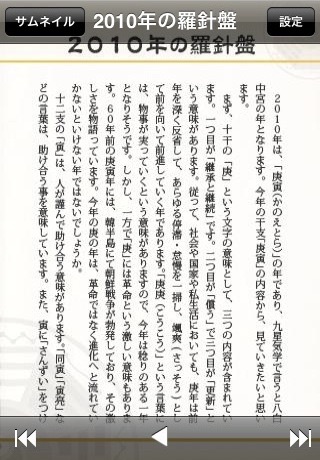 サムネイル
2010年の羅針盤
設定
２０１０年の羅針盤
２０１０年は、「庚寅(かのえとら)」の年であり、九星気学で言うと八白
中宮の年となります。今年の干支「庚寅」の内容から、見ていきたいと思い
ます。
まず、十干の「庚」という文字の意味として、三つの内容が含まれてい
ます。一つ目が「継承と継続」です。二つ目が「償う」で三つ目が「更新」と
いう意味があります。従って、社会や国家や私生活においても、庚年は前
年を深く反省して、あらゆる停滞・怠慢を一掃し、颯爽(さっそう)とし
て前を向いて前進していく年であります。「庚庚(こうこう)」という言葉に
は、物事が実っていくという意味がありますので、今年は稔りのある一年
となりそうです。しかし、一方で「庚」には革命という激しい意味もありま
す。６０年前の庚寅年には、韓半島にて朝鮮戦争が勃発しており、その激
しさを物語っています。今年の庚の年は、革命ではなく進化へと流れてい
かないといけない年ではないでしょうか。
十二支の「寅」は、人が謹んで助け合う意味があります。「同寅」「寅亮」な
どの言葉は、助け合う事を意味しています。また、寅に「さんずい」をつけ